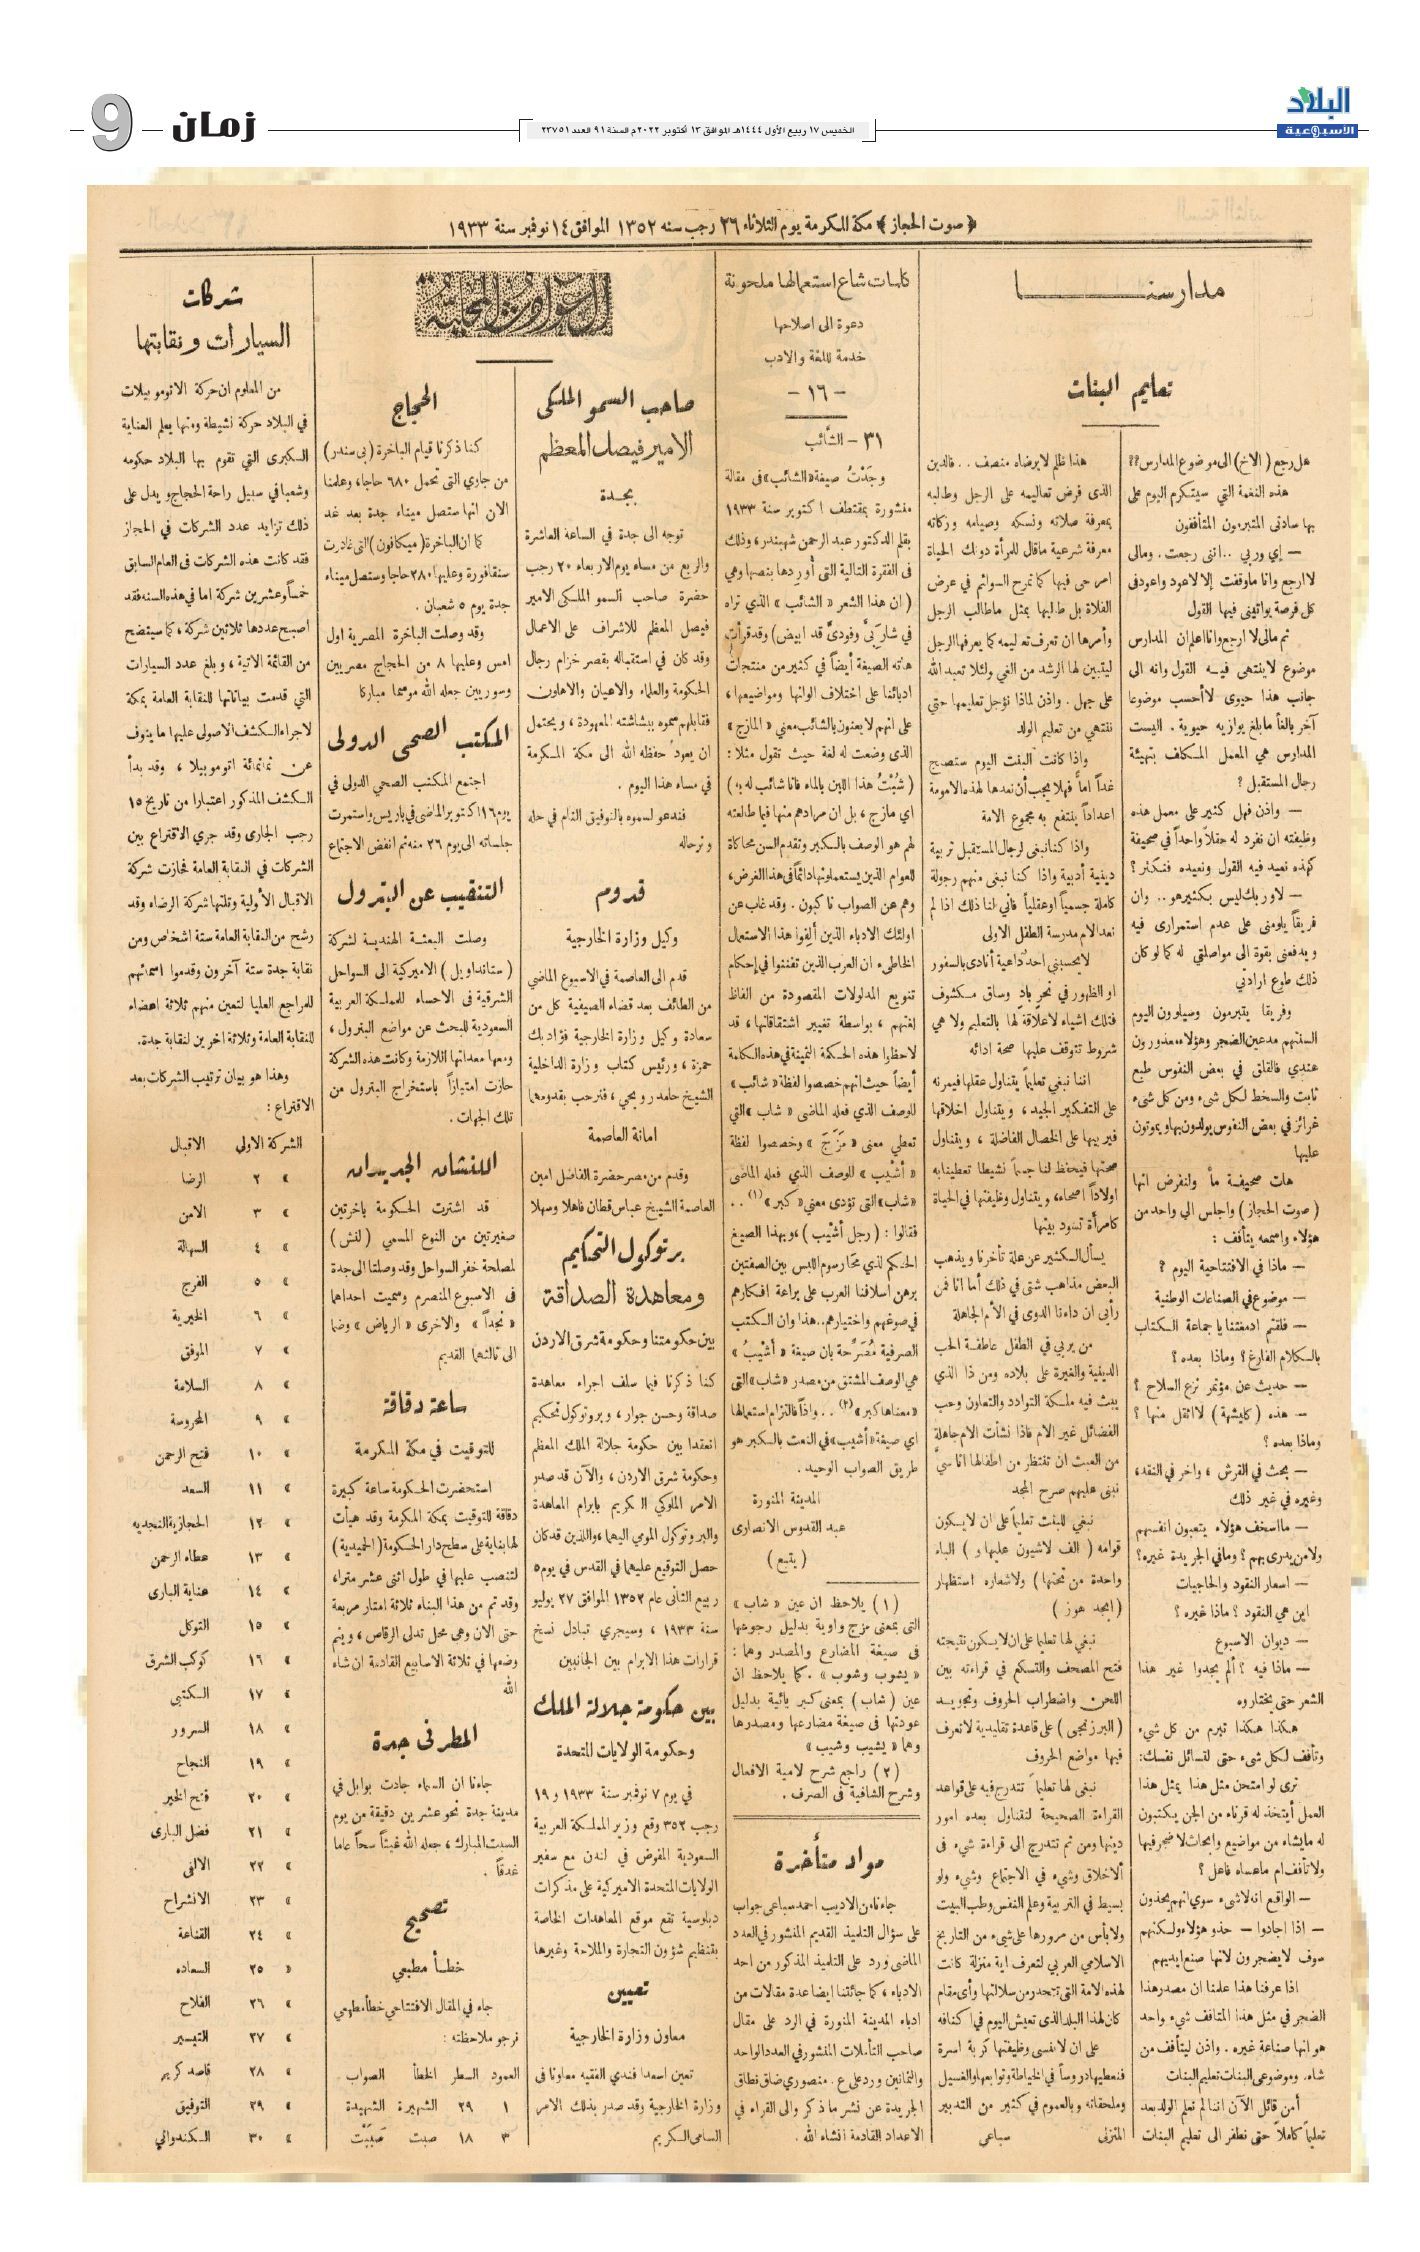 البلاد
الأسبوعية
الخميس ١٧ ربيع الأول ١٤٤٤هـ الموافق ١٣ أكتوبر ٢٠٢٢م السنة ٩١ العدد ٢٣٧٥١
زمان
9
﴿ صوت الحجاز ﴾ مكة المكرمة يوم الثلاثاء ٢٦ رجب سنه ١٣٥٢ الموافق ١٤ نوفمبر سنة ١٩٣٣
مدارسنا
تعليم البنات
هل رجع ( الاخ ) الى موضوع المدارس؟؟
هذه النغمة التي سيتكرم اليوم على
بها سادتى المتبرمون المتأففون
— إي وربي .. اننى رجعت . ومالى
لا ارجع وانا ما وقفت إلا لاعود واعود فى
كل فرصة يواتينى فيها القول
ثم مالى لا ارجع وانا اعلم ان المدارس
موضوع لا ينتهى فيه القول وانه الى
جانب هذا حيوى لا أحسب موضوعا
آخر بالغاً ما بلغ يوازيه حيوية . اليست
المدارس هي المعمل المكلف بتهيئة
رجال المستقبل ؟
— واذن فهل كثير على معمل هذه
وظيفته ان نفرد له حقلاً واحداً في صحيفة
كهذه نعيد فيه القول ونعيده فنكثر ؟
— لا وربك ليس بكثير هو .. وان
فريقاً يلومنى على عدم استمرارى فيه
ويدفعنى بقوة الى مواصلتي له كما لو كان
ذلك طوع ارادتي
وفريقا يتبرمون وسيلوون اليوم
السنتهم مدعين الضجر وهؤلاء معذورون
عندي فالقلق في بعض النفوس طبع
ثابت والسخط لكل شىء ومن كل شىء
غرائز في بعض النفوس يولدون بها ويموتون
عليها
هات صحيفة ما ولنفرض انها
( صوت الحجاز ) واجلس الى واحد من
هؤلاء واسمعه يتأفف :
— ماذا في الافتتاحية اليوم ؟
— موضوع في الصناعات الوطنية
— فلقتم ادمغتنا يا جماعة الكتاب
بالكلام الفارغ ؟ وماذا بعده ؟
— حديث عن مؤتمر نزع السلاح ؟
— هذه ( كليشهة ) لا اثقل منها ؟
وماذا بعده ؟
— بحث في القرش ، واخر في النقد،
وغيره في غير ذلك
— ما اسخف هؤلاء يتعبون انفسهم
ولا من يدرى بهم ؟ وما في الجريدة غيره؟
— اسعار النقود والحاجيات
اين هي النقود ؟ ماذا غيره ؟
— ديوان الاسبوع
— ماذا فيه ؟ ألم يجدوا غير هذا
الشعر حتى يختاروه
هكذا هكذا تبرم من كل شىء
وتأفف لكل شىء حتى لتسائل نفسك:
ترى لو امتحن مثل هذا يمثل هذا
العمل أيتخذ له قرناء من الجن يكتبون
له ما يشاء من مواضيع وابحاث لا ضجر فيها
ولا تأفف ام ما هساه فاعل ؟
— الواقع انه لا شىء سوي انهم يحذون
— اذا اجادوا — حذو هؤلاء ولكنهم
سوف لا يضجرون لانها صنع ايديهم
اذا عرفنا هذا علمنا ان مصدر هذا
الضجر في مثل هذا المتافف شيء واحد
هو انها صناعة غيره . واذن ليتأفف من
شاء. وموضوعى البنات تعليم البنات
أمن قائل الآن اننا لم نعلم الولد بعد
تعليماً كاملاً حتى نطفر الى تعليم البنات
هذا ظلم لا يرضاه منصف .. فالدين
الذى فرض تعاليمه على الرجل وطالبه
بمعرفة صلاته ونسكه وصيامه وزكاته
معرفة شرعية ما قال للمرأة دونك الحياة
امرحى فيها كما تمرح السوائم في عرض
الفلاة بل طالبها بمثل ما طالب الرجل
وأمرها ان تعرف تعاليمه كما يعرفها الرجل
ليتبين لها الرشد من الغي ولئلا تعبد الله
على جهل . واذن لماذا نؤجل تعليمها حتي
ننتهي من تعليم الولد
واذا كانت البنت اليوم ستصبح
غداً اماً فهلا يجب أن نعدها لهذه الامومة
اعداداً ينتفع به مجموع الامة
واذا كنا نبغى لرجال المستقبل تربية
دينية أدبية واذا كنا نبغى منهم رجولة
كاملة جسمياً او عقلياً فأنى لنا ذلك اذا لم
نعد الام مدرسة الطفل الاولى
لا يحسبني احد داعية أنادى بالسفور
او الظهور في نحر باد وساق مكشوف
فتلك اشياء لا علاقة لها بالتعليم ولا هي
شروط تتوقف عليها صحة ادائه
اننا نبغي تعليماً يتناول عقلها فيمرنه
على التفكير الجيد ، ويتناول اخلاقها
فيربيها على الخصال الفاضلة ، ويتناول
صحتها فيحفظ لنا جسماً نشيطا تعطينا به
اولاداً اصحاء، ويتناول وظيفتها في الحياة
كامرأة تسود بيتها
يسأل الكثير عن علة تأخرنا ويذهب
البعض مذاهب شتى في ذلك أما انا فمن
رأيى ان داءنا الدوى في الأم الجاهلة
من يربي في الطفل عاطفة الحب
الدينية والغيرة على بلاده ومن ذا الذي
يبث فيه ملكة التوادد والتعاون وحب
الفضائل غير الام فاذا نشأت الام جاهلة
من العبث ان تنتظر من اطفالها اناسيّ
نبنى عليهم صرح المجد
نبغي للبنت تعليماً على ان لا يكون
قوامه ( الف لاشيون عليها و ) الباء
واحدة من تحتها ) ولا شعاره استظهار
( ابجد هوز )
نبغي لها تعليما على ان لا يكون نتيجته
فتح المصحف والتسكم في قراءته بين
اللحن واضطراب الحروف وتجويد
( البرزنجى ) على قاعدة تقليدية لا تعرف
فيها مواضع الحروف
نبغى لها تعليماً تتدرج فيه على قواعد
القراءة الصحيحة لتتناول بعده امور
دينها ومن ثم تتدرج الى قراءة شيء فى
الاخلاق وشيء في الاجتماع وشيء ولو
بسيط في التربية وعلم النفس وطب البيت
ولا بأس من مرورها على شىء من التاريخ
الاسلامي العربي لتعرف اية منزلة كانت
لهذه الامة التي تتحدر من سلالتها وأى مقام
كان لهذا البلد الذى تعيش اليوم في اكنافه
على ان لا ننسى وظيفتها كربة اسرة
فنعطيها دروساً في الخياطة وتوابعها والغسيل
وملحقاته وبالعموم في كثير من التدبير
المنزلى سباعي
كلمات شاع استعمالها ملحونة
دعوة الى اصلاحها
خدمة للغة والادب
- ١٦ -
٣١ - الشّائب
وجَدْتُ صيغة «الشائب» في مقالة
منشورة بمقتطف اكتوبر سنة ١٩٣٣
بقلم الدكتور عبد الرحمن شهبندر ، وذلك
فى الفقرة التالية التى أوردها بنصها وهي
( ان هذا الشعر «الشائب» الذي تراه
في شاربَيَّ وفودَيَّ قد ابيض ) وقد قرأت
هاته الصيغة أيضاً في كثير من منتجات
ادبائنا على اختلاف الوانها ومواضيعها ،
على انهم لا يعنون بالشائب معني «المازج»
الذى وضعت له لغة حيث تقول مثلا :
( شُبْتُ هذا اللبن بالماء فانا شائب له به )
اي مازج ، بل ان مرادهم منها فيما طالعته
لهم هو الوصف بالكبر وتقدم السن محاكاة
للعوام الذين يستعملونها دائماً فى هذا الغرض،
وهم عن الصواب ناكبون . وقد غاب عن
اولئك الادباء الذين ألِفوا هذا الاستعمال
الخاطىء ان العرب الذين تفننوا في إحكام
تنويع المدلولات المقصودة من الفاظ
لغتهم ، بواسطة تغيير اشتقاقاتها ، قد
لاحظوا هذه الحكمة الثمينة في هذه الكلمة
أيضاً حيث انهم خصصوا لفظة «شائب»
للوصف الذي فعله الماضى «شاب» التي
تعطي معنى «مَزَجَ» وخصصوا لفظة
«أشْيَب» للوصف الذي فعله الماضى
«شاب» التى تؤدى معنى «كبر» (١) ..
فقالوا : ( رجل أشْيَب ) ، وبهذا الصيغ
الحكم لذي محَا رسوم اللبس بين الصفتين
برهن اسلافنا العرب على براعة افكارهم
في صوغهم واختيارهم .. هذا وان الكتب
الصرفية مُصَرِّحة بان صيغة «أشْيَبُ»
هي الوصف المشتق من مصدر «شاب» التى
«معناها كبر» (٢) .. واذاً فالتزام استعمالها
اي صيغة «أشيب» في النعت بالكبر هو
طريق الصواب الوحيد .
المدينة المنورة
عبد القدوس الانصارى
( يتبع )
( ١ ) يلاحظ ان عين «شاب»
التى بمعنى مزج واوية بدليل رجوعها
فى صيغة المضارع والمصدر وهما :
«يشوب وشوب» . كما يلاحظ ان
عين ( شاب ) بمعنى كبر يائية بدليل
عودتها فى صيغة مضارعها ومصدرها
وهما «يشيب وشيب»
( ٢ ) راجع شرح لامية الافعال
وشرح الشافية في الصرف .
مواد متأخرة
جاءنا من الاديب احمد سباعى جواب
على سؤال التلميذ القديم المنشور في العدد
الماضى ورد على التلميذ المذكور من احد
الادباء ، كما جائتنا ايضا عدة مقالات من
ادباء المدينة المنورة في الرد على مقال
صاحب التأملات المنشور في العدد الواحد
والثمانين ورد على ع . منصوري ضاق نطاق
الجريدة عن نشر ما ذكر والى القراء في
الاعداد القادمة انشاء الله .
الحوادث المحلية
صاحب السمو الملكى
الامير فيصل المعظم
بجدة
توجه الى جدة في الساعة العاشرة
والربع من مساء يوم الاربعاء ٢٠ رجب
حضرة صاحب السمو الملكى الامير
فيصل المعظم للاشراف على الاعمال
وقد كان في استقباله بقصر خزام رجال
الحكومة والعلماء والاعيان والاهلون
فقابلهم سموه ببشاشته المعهودة ، ويحتمل
ان يعود حفظه الله الى مكة المكرمة
في مساء هذا اليوم .
فندعو لسموه بالتوفيق التام في حله
وترحاله
قدوم
وكيل وزارة الخارجية
قدم الى العاصمة في الاسبوع الماضي
من الطائف بعد قضاء الصيفية كل من
سعادة وكيل وزارة الخارجية فؤاد بك
حمزة ، ورئيس كتاب وزارة الداخلية
الشيخ حامد رويحي ، فنرحب بقدومهما
امانة العاصمة
وقدم من مصر حضرة الفاضل امين
العاصمة الشيخ عباس قطان فاهلا وسهلا
برتوكول التحكيم
ومعاهدة الصداقة
بين حكومتنا وحكومة شرق الاردن
كنا ذكرنا فيما سلف اجراء معاهدة
صداقة وحسن جوار ، وبروتوكول تحكيم
انعقدا بين حكومة جلالة الملك المعظم
وحكومة شرق الاردن ، والآن قد صدر
الامر الملوكي الكريم بابرام المعاهدة
والبروتوكول المومي اليهما ، واللذين قد كان
حصل التوقيع عليهما في القدس في يوم ٥
ربيع الثانى عام ١٣٥٢ الموافق ٢٧ يوليو
سنة ١٩٣٣ ، وسيجري تبادل نسخ
قرارات هذا الابرام بين الجانبين
بين حكومة جلالة الملك
وحكومة الولايات المتحدة
في يوم ٧ نوفمبر سنة ١٩٣٣ و ١٩
رجب ٣٥٢ وقع وزير المملكة العربية
السعودية المفوض في لندن مع سفير
الولايات المتحدة الاميركية على مذكرات
دبلوسية تقع موقع المعاهدات الخاصة
بتنظيم شؤون التجارة والملاحة وغيرها
تعيين
معاون وزارة الخارجية
تعين اسعد افندي الفقيه معاونا فى
وزارة الخارجية وقد صدر بذلك الامر
السامى الكريم
الحجاج
كنا ذكرنا قيام الباخرة ( بى سندر )
من جاري التى تحمل ٦٨٠ حاجا، وعلمنا
الان انها ستصل ميناء جدة بعد غد
كما ان الباخرة ( ميكانون ) التى غادرت
سنقافورة وعليها ٢٨٠ حاجا وستصل ميناء
جدة يوم ٥ شعبان .
وقد وصلت الباخرة المصرية اول
امس وعليها ٨ من الحجاج مصريين
وسوريين جعله الله موسما مباركا
المكتب الصحى الدولى
اجتمع المكتب الصحى الدولى في
يوم ١٦ اكتوبر الماضى في باريس واستمرت
جلساته الى يوم ٢٦ منه ثم انفض الاجتماع
التنقيب عن البترول
وصلت البعثة الهندسية لشركة
( ستانداويل ) الاميركية الى السواحل
الشرقية فى الاحساء للمملكة العربية
السعودية للبحث عن مواضع البترول ،
ومعها معداتها اللازمة وكانت هذه الشركة
حازت امتيازاً باستخراج البترول من
تلك الجهات .
اللنشان الجديدان
قد اشترت الحكومة باخرتين
صغيرتين من النوع المسمي ( لنش )
لمصلحة خفر السواحل وقد وصلتا الى جدة
فى الاسبوع المنصرم وسميت احداهما
«نجداً» والاخرى «الرياض» وضما
الى ثالثهما القديم
ساعة دقاقة
للتوقيت في مكة المكرمة
استحضرت الحكومة ساعة كبيرة
دقاقة للتوقيت بمكة المكرمة وقد هيأت
لها بناية على سطح دار الحكومة ( الحميدية )
لتنصب عليها في طول اثنى عشر مترا ،
وقد تم من هذا البناء ثلاثة امتار مربعة
حتى الان وهى محل تدلى الرقاص ، ويتم
وضعها في ثلاثة الاسابيع القادمة ان شاء
الله
المطر فى جدة
جاءنا ان السماء جادت بوابل في
مدينة جدة نحو عشرين دقيقة من يوم
السبت المبارك ، جعله الله غيثاً سحاً عاما
غدقاً .
تصحيح
خطأ مطبعي
جاء في المقال الافتتاحي خطأ مطبعي
نرجو ملاحظته :
العمود السطر الخطأ الصواب
١ ٢٩ الشهيرة الشهيدة
٣ ١٨ صبت صَبَبْت
شركات
السيارات ونقابتها
من المعلوم ان حركة الاتوموبيلات
في البلاد حركة نشيطة ومنها يعلم العناية
الكبرى التي تقوم بها البلاد حكومه
وشعبا في سبيل راحة الحجاج ويدل على
ذلك تزايد عدد الشركات في الحجاز
فقد كانت هذه الشركات في العام السابق
خمساً وعشرين شركة اما في هذه السنه فقد
اصبح عددها ثلاثين شركة ، كما سيتضح
من القائمة الاتية ، وبلغ عدد السيارات
التي قدمت بياناتها للنقابة العامة بمكة
لاجراء الكشف الاصولى عليها ما ينوف
عن ثمانمائة اتوموبيلا ، وقد بدأ
الكشف المذكور اعتبارا من تاريخ ١٥
رجب الجارى وقد جري الاقتراع بين
الشركات في النقابة العامة فحازت شركة
الاقبال الأولية وتلتها شركة الرضاء وقد
رشح من النقابة العامة ستة اشخاص ومن
نقابة جدة ستة آخرون وقدموا اسمائهم
للمراجع العليا لتعين منهم ثلاثة اعضاء
للنقابة العامة وثلاثة اخرين لنقابة جدة.
وهذا هو بيان ترتيب الشركات بعد
الاقتراع :
الشركة الاولى الاقبال
» ٢ الرضا
» ٣ الامن
» ٤ السهالة
» ٥ الفرج
» ٦ الخيرية
» ٧ الموفق
» ٨ السلامة
» ٩ المحروسة
» ١٠ فتح الرحمن
» ١١ السعد
» ١٢ الحجازية النجديه
» ١٣ عطاء الرحمن
» ١٤ عناية البارى
» ١٥ التوكل
» ١٦ كوكب الشرق
» ١٧ الكتبي
» ١٨ السرور
» ١٩ النجاح
» ٢٠ فتح الخير
» ٢١ فضل البارى
» ٢٢ الالفى
» ٢٣ الانشراح
» ٢٤ القناعة
» ٢٥ السعاده
» ٢٦ الفلاح
» ٢٧ التيسير
» ٢٨ قاصد كريم
» ٢٩ التوفيق
» ٣٠ الكندواني